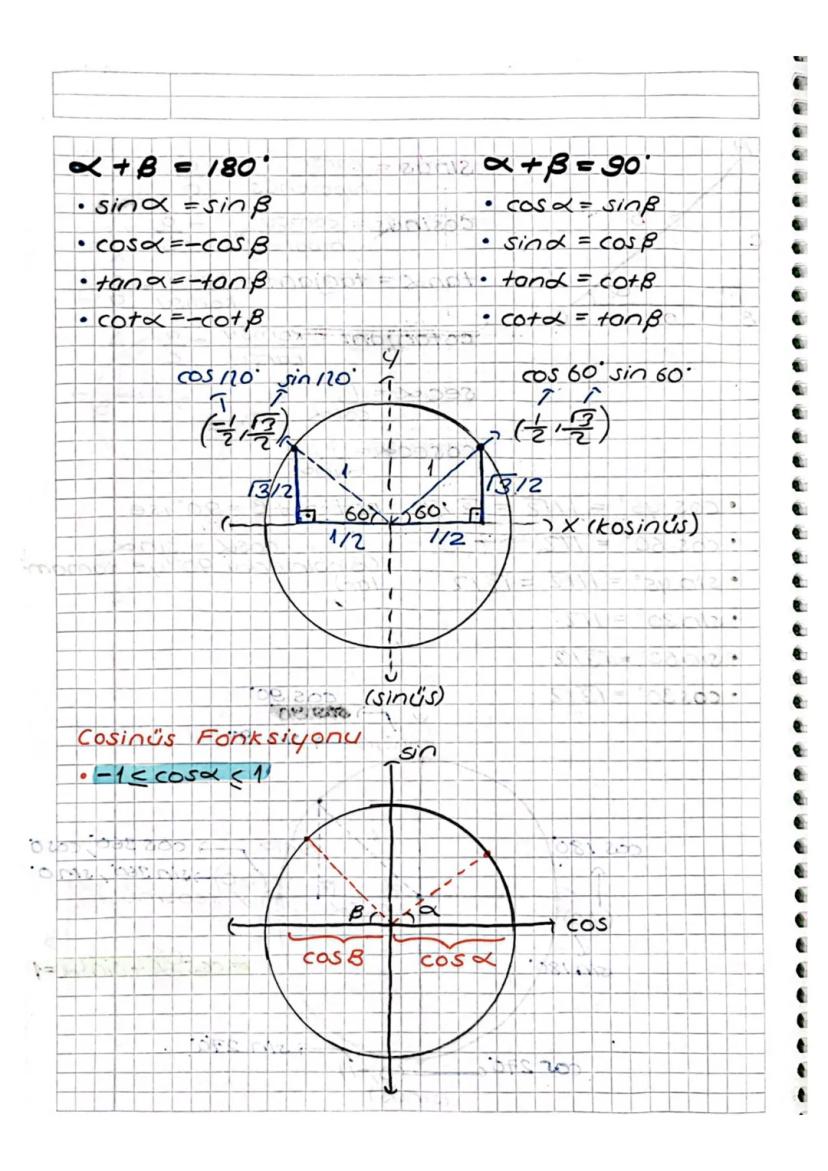 α + β = 180°
• sinα = sinβ
• cosα = -cosβ
• tanα = -tanβ
• cotα = -cotβ
α + β = 90°
• cosα = sinβ
• sinα = cosβ
• tanα = cotβ
• cotα = tanβ
y
cos 120° sin 120°
(-1/2, √3/2)
cos 60° sin 60°
(1/2, √3/2)
1 1
√3/2 √3/2
60° 60°
x (kosinüs)
1/2 1/2
(sinüs)
Cosinüs Fonksiyonu
• -1 ≤ cosα ≤ 1
sin
β α
cos
cosβ cosα